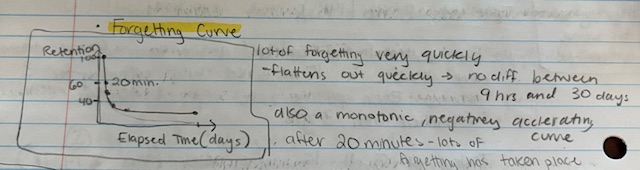 • Forgetting Curve
Retention
100
60
40
20 min.
Elapsed Time (days)
lot of forgetting very quickly
- flattens out quickly → no diff between
9 hrs and 30 days
also a monotonic, negativey accelerating
curve
. after 20 minutes - lots of
forgetting has taken place